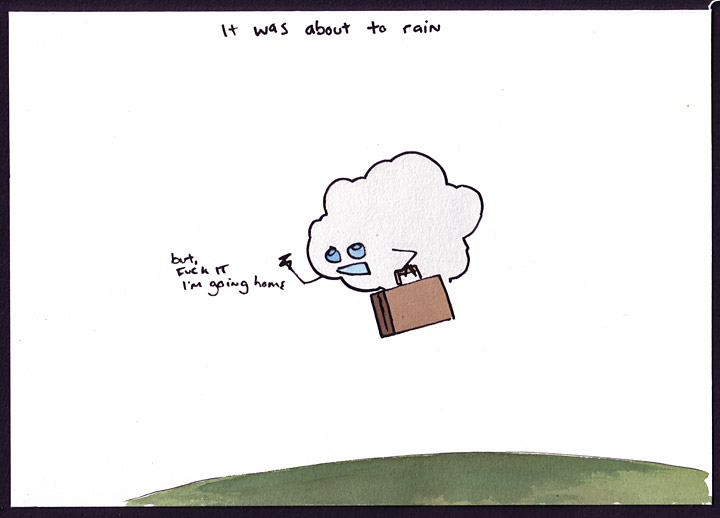 It was about to rain
but,
Fuck IT
I'm going home